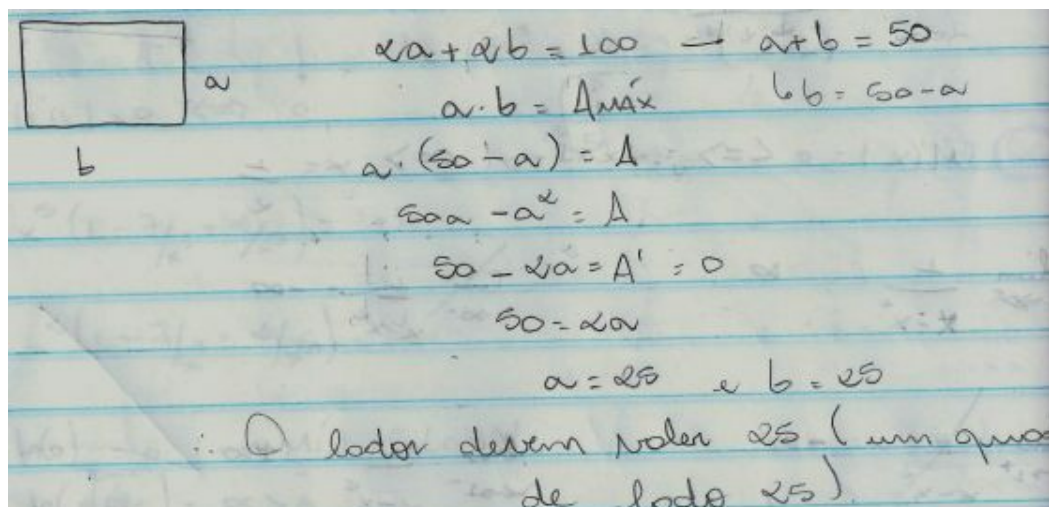 2a + 2b = 100 — a + b = 50
a
a · b = Amáx
↳ b = 50 - a
b
a · (50 - a) = A
50a - a² = A
50 - 2a = A' = 0
50 = 2a
a = 25 e b = 25
∴ O lados devem valer 25 (um qua
de lado 25).